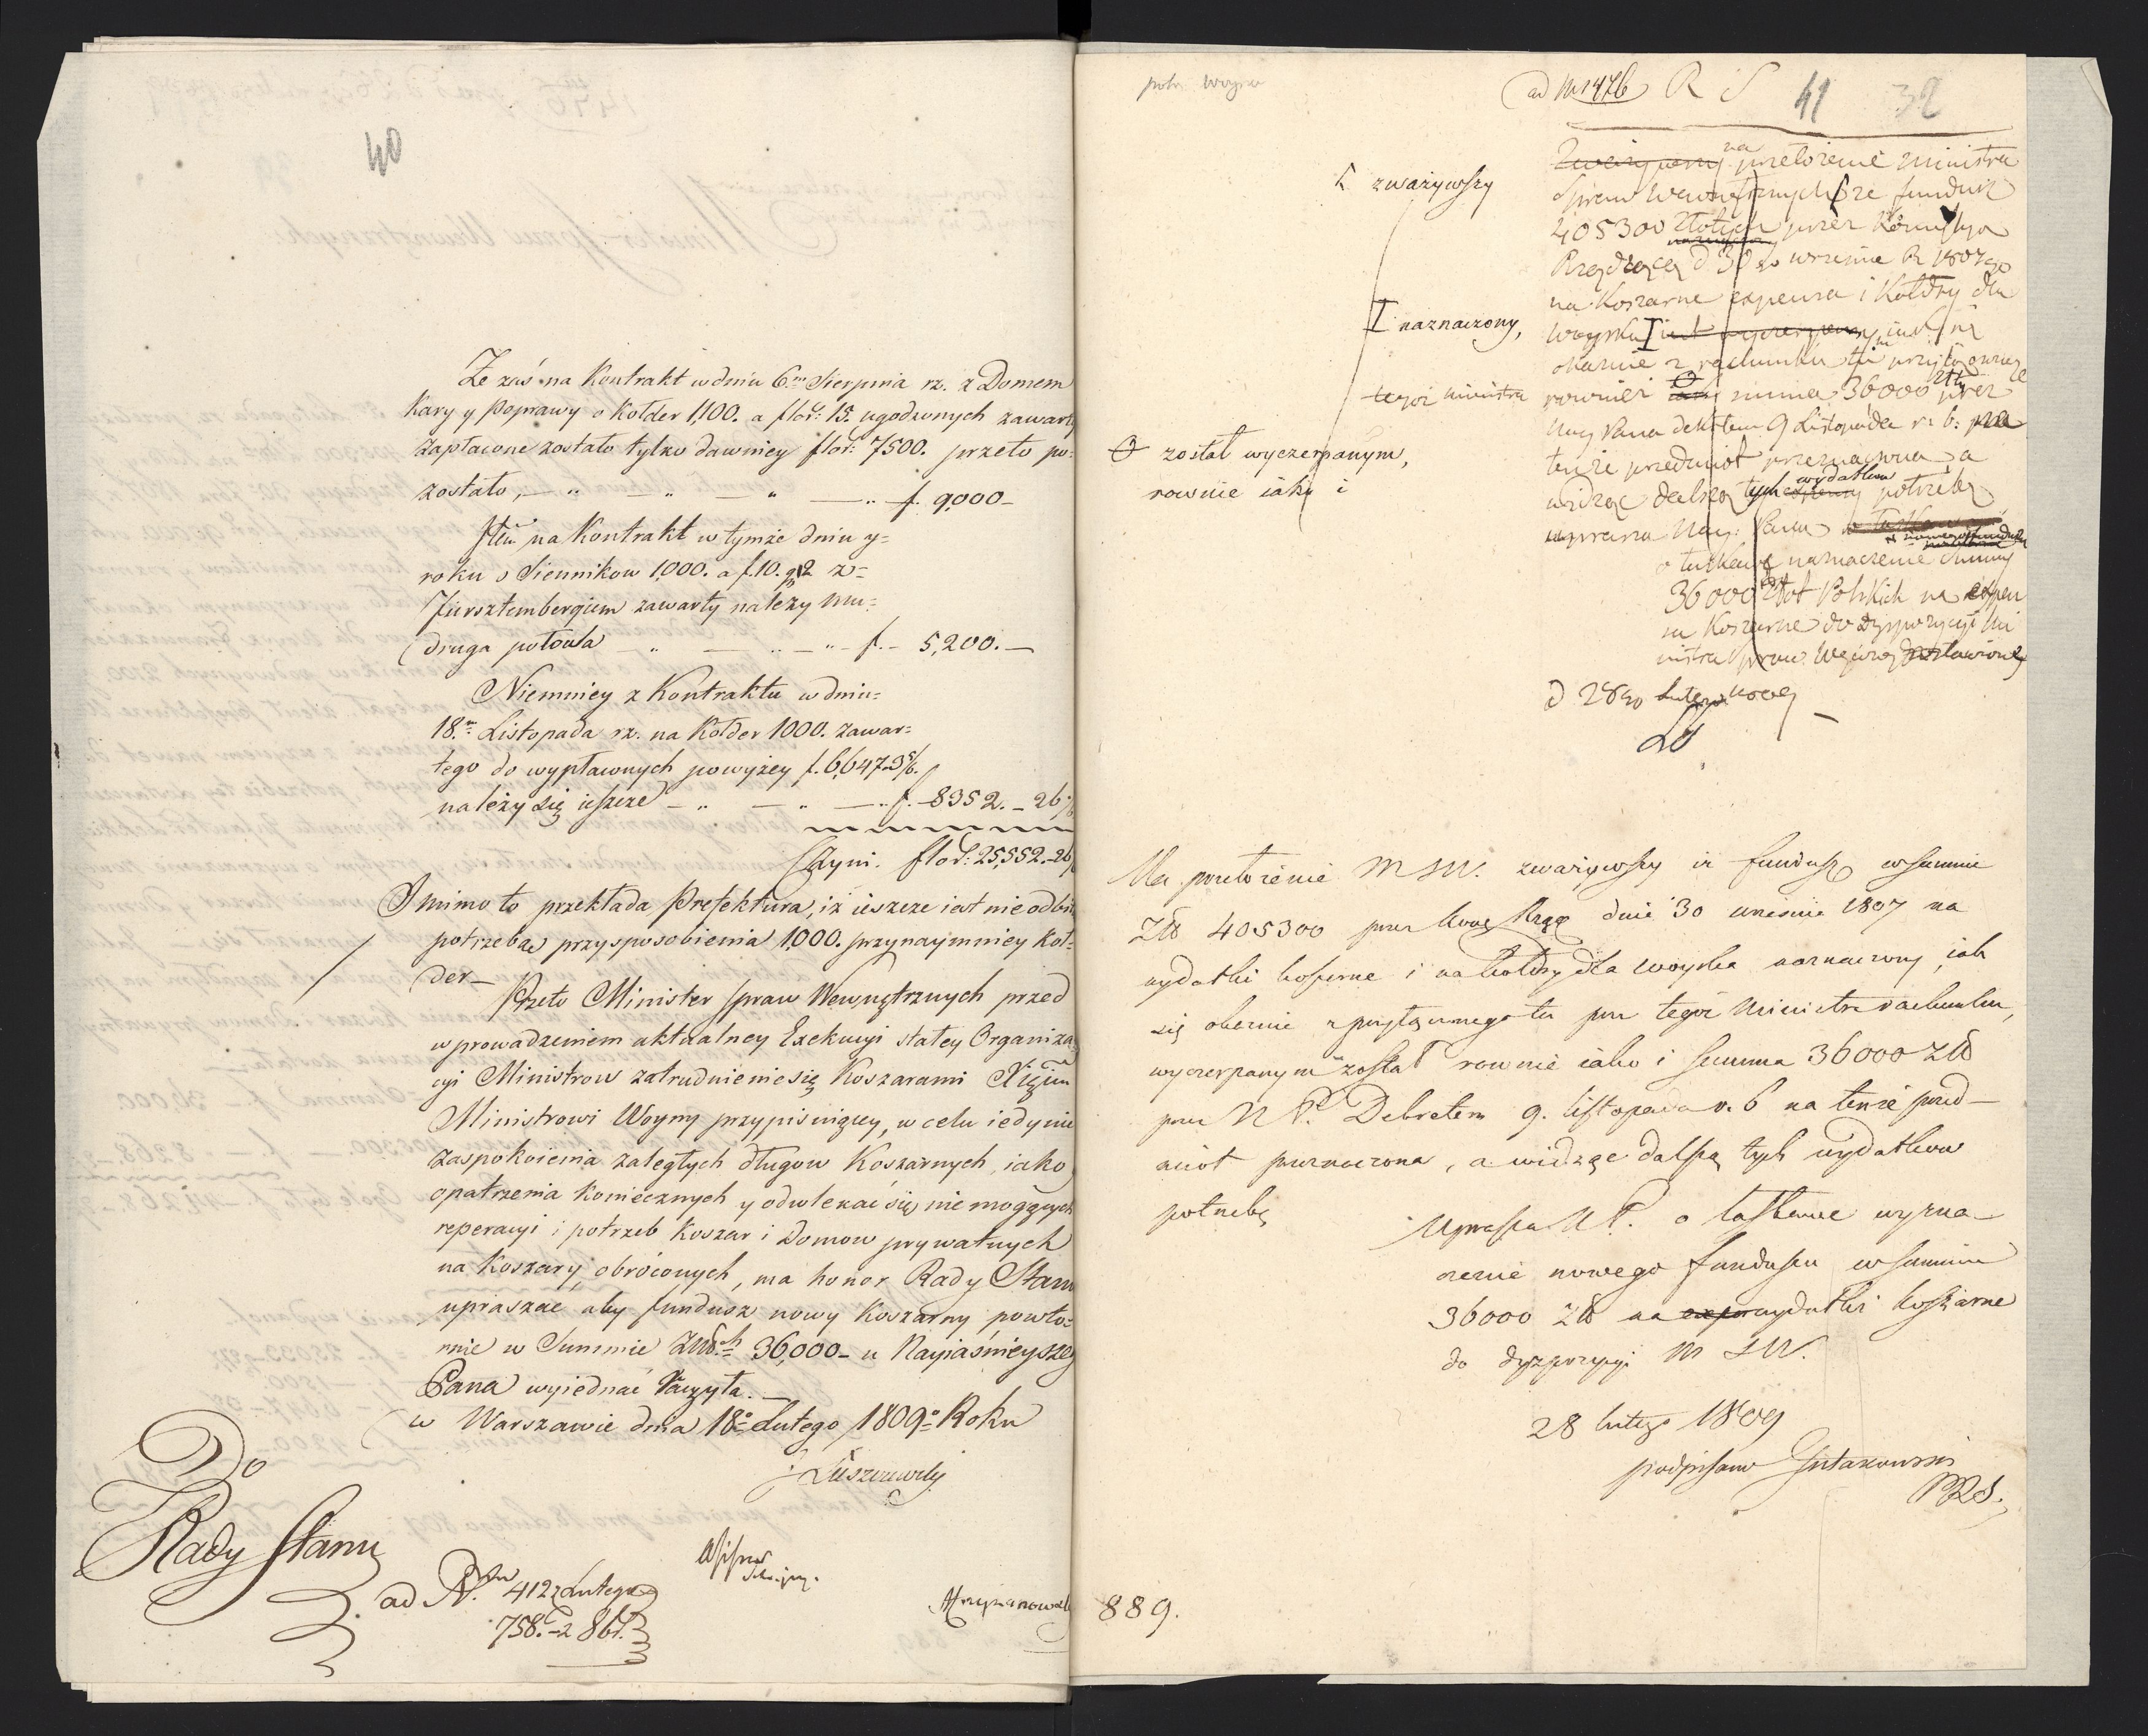 40
Ze zaś na Kontrakt w dniu 6.m Sierpnia rz. z Domem
Kary y Poprawy o Kołder 1,100. a flor: 15. ugodzonych zawarty
zapłacone zostało tylko dawniey flor: 7500. przeto po=
zostało, — „ — „ — „ — „ f. 9,000 —
Item na Kontrakt w tymże dniu y=
roku o Siennikow 1,000. a f. 10. g 12 z=
Fürsztembergiem zawarty należy mu=
druga połowa — „ — „ — „ — f. — 5,200. —
Niemniey z Kontraktu w dniu=
18.m Listopada rz. na Kołder 1000. zawar=
tego do wypłaconych powyżey f. 6,647.
należy się ieszcze — „ — „ — „ f. 8352. — 26
Czyni. flor: 25,552. — 26
I mimo to przekłada Prefektura, iż ieszcze iest nieodbi
potrzeba przysposobienia 1,000. przynaymniey Koł=
der —
Przeto Minister Spraw Wewnętrznych przed
wprowadzeniem aktualney Exekucyi stałey Organiza
cyi Ministrow zatrudnienie się Koszarami Xięciu
Ministrowi Woyny przypisuiącey, w celu iedynie
zaspokoienia zaległych długow Koszarnych, iako
opatrzenia Koniecznych y odwlekać się nie mogących
reperacyi i potrzeb Koszar i Domow prywatnych
na Koszary obróconych, ma honor Rady Stanu
upraszać aby fundusz nowy Koszarny powtó=
rnie w Summie Złł.ch 36,000 — u Nayiaśnieyszeg
Pana wyiednać raczyła. —
w Warszawie dnia 18o Lutego 1809o Roku
Łuszczewsky
Do
Rady Stanu
ad N. 412 z Lutego
758. z 86r.
889.
ad N 1476 R S 41 32
zważywszy
na przełożenie Ministra
Spraw Wewnętrznych że fundusz
405300 Złotych przez Kommissyą
Rządzącą d 30go wrzesnia R 1807go
na Koszarne expensa i Kołdry dla
I naznaczony,
Woyska I iest wyczerpany iak się
okazuie z rachunku tu przyłączonego
tegoż ministra
rownież summa 36000 złł przez
Nay Pana dekretem 9 Listopada r. b: na
został wyczerpanym,
rownie iako i
tenże przedmiot przeznaczona a
widząc dalszą tych wydatkow potrzebę
uprasza Nay: Pana
o łaskawe naznaczenie Summy
36000 Złot Polskich na expen
sa Koszarne do Dyspozycyi Mi
nistra Spraw Wewnę
d 28go Lutego 1809
Na przełożenie M S W. zważywszy iż fundusz w summie
Złł 405300 przez Komę Rządz dnia 30 wrzesnia 1807 na
wydatki koszarne i na kołdry dla woyska naznaczony, iak
się okazuie z przyłączonego tu przez tegoż Ministra rachunku,
wyczerpanym został rownie iako i Summa 36000 Złł
przez N P. Dekretem 9. Listopada r. b na tenże przed—
miot przeznaczona, a widząc dalszą tych wydatkow
potrzebę
Uprasza N P. o łaskawe wyzna—
czenie nowego funduszu w summie
36000 Złł na wydatki koszarne
do dyspozycyi M S W.
28 lutego 1809
podpisano Gutakowski
PRS.